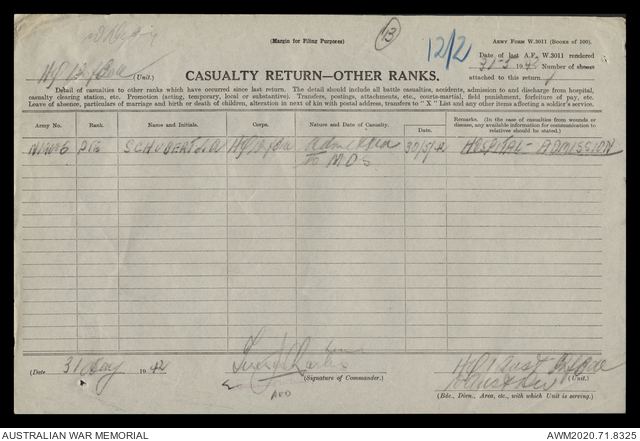 (Margin for Filing Purposes)
13
12/2
ARMY FORM W.3011 (BOOKS OF 100).
Date of last A.F. W.3011 rendered
31-5 1942 Number of sheets
attached to this return
(Unit.)
CASUALTY RETURN—OTHER RANKS.
Detail of casualties to other ranks which have occurred since last return. The detail should include all battle casualties, accidents, admission to and discharge from hospital,
casualty clearing station, etc. Promotion (acting, temporary, local or substantive). Transfers, postings, attachments, etc., courts-martial, field punishment, forfeiture of pay, etc.
Leave of absence, particulars of marriage and birth or death of children, alteration in next of kin with postal address, transfers to "X" List and any other items affecting a soldier's service.
Army No. Rank. Name and Initials. Corps. Nature and Date of Casualty. Date. Remarks. (In the case of casualties from wounds or disease, any available information for communication to relatives should be stated.)
Pte SCHUBERT admitted 30/5/42 HOSPITAL - ADMISSION
to MDS
(Date 31 May 1942
(Signature of Commander.)
(Unit.)
(Bde., Divn., Area, etc., with which Unit is serving.)
AUSTRALIAN WAR MEMORIAL
AWM2020.71.8325